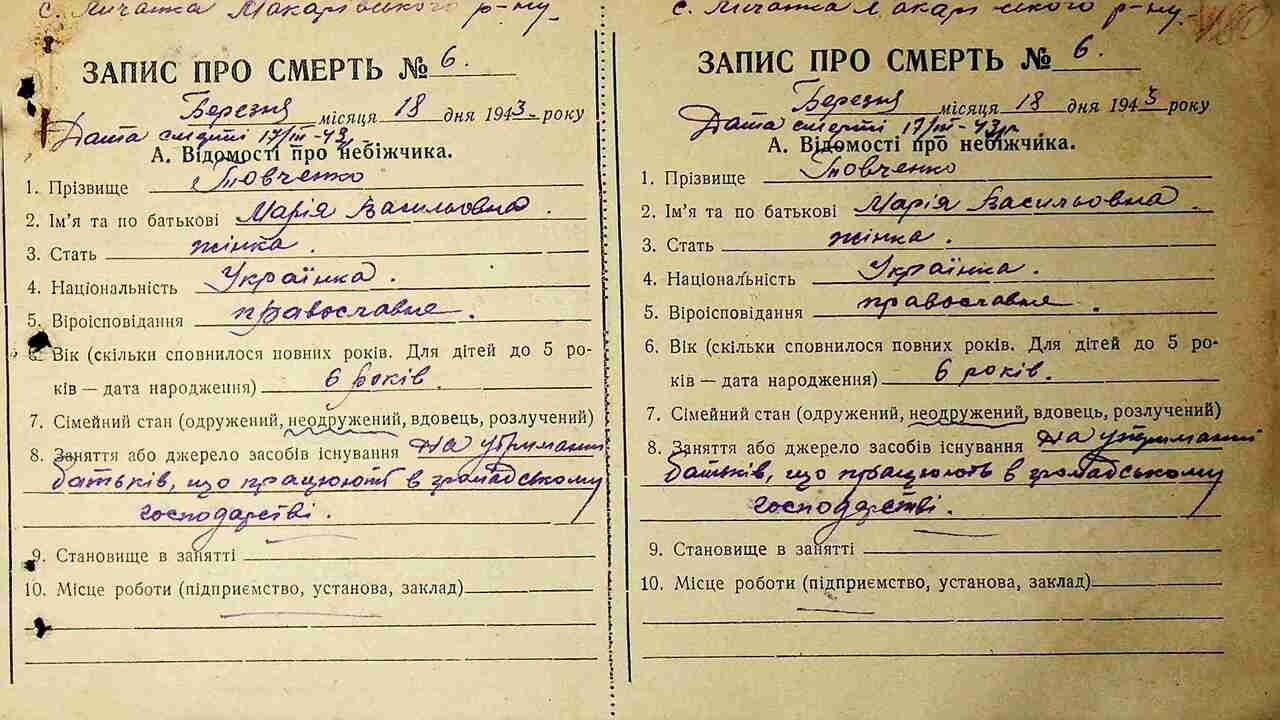 с. Личанка Макарівського р-ну.
ЗАПИС ПРО СМЕРТЬ № 6.
Березня місяця 18 дня 1943 року
Дата смерті 17/III-43р
А. Відомості про небіжчика.
1. Прізвище Товченко
2. Ім’я та по батькові Марія Васильовна.
3. Стать жінка.
4. Національність Українка.
5. Віроісповідання православне.
6. Вік (скільки сповнилося повних років. Для дітей до 5 ро-
ків — дата народження) 6 років.
7. Сімейний стан (одружений, неодружений, вдовець, розлучений)
8. Заняття або джерело засобів існування На утриманні
батьків, що працюють в громадському
господарстві.
9. Становище в занятті
10. Місце роботи (підприємство, установа, заклад)
с. Личанка Макарівського р-ну.
ЗАПИС ПРО СМЕРТЬ № 6.
Березня місяця 18 дня 1943 року
Дата смерті 17/III-43р
А. Відомості про небіжчика.
1. Прізвище Товченко
2. Ім’я та по батькові Марія Васильовна.
3. Стать жінка.
4. Національність Українка.
5. Віроісповідання православне.
6. Вік (скільки сповнилося повних років. Для дітей до 5 ро-
ків — дата народження) 6 років.
7. Сімейний стан (одружений, неодружений, вдовець, розлучений)
8. Заняття або джерело засобів існування На утриманні
батьків, що працюють в громадському
господарстві.
9. Становище в занятті
10. Місце роботи (підприємство, установа, заклад)